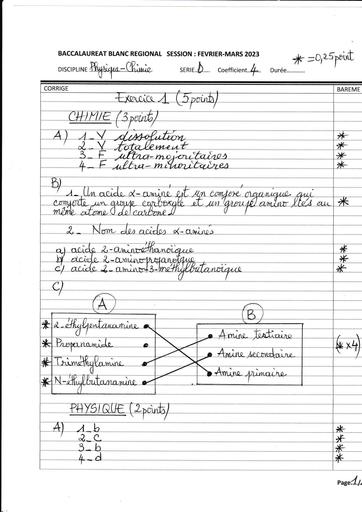 BACCALAUREAT BLANC REGIONAL SESSION : FEVRIER-MARS 2023
* = 0,25 point
DISCIPLINE Physique-Chimie SERIE D Coefficient 4 Durée
CORRIGE BAREME
Exercice 1 (5 points)
CHIMIE (3 points)
A) 1_V dissolution *
2_V totalement *
3_F ultra-majoritaires *
4_F ultra-minoritaires *
B)
1_Un acide α-aminé est un composé organique qui
comporte un groupe carboxyle et un groupe amino liés au *
même atome de carbone.
2_ Nom des acides α-aminés
a) acide 2-aminoéthanoïque *
b) acide 2-aminopropanoïque *
c) acide 2-amino-3-méthylbutanoïque *
C)
A
B
* 2-éthylpentanamine
* Propanamide
* Triméthylamine
* N-éthylbutanamine
Amine tertiaire
Amine secondaire
Amine primaire
(* x4)
PHYSIQUE (2 points)
A) 1_b *
2_c *
3_b *
4_d *
Page 1/